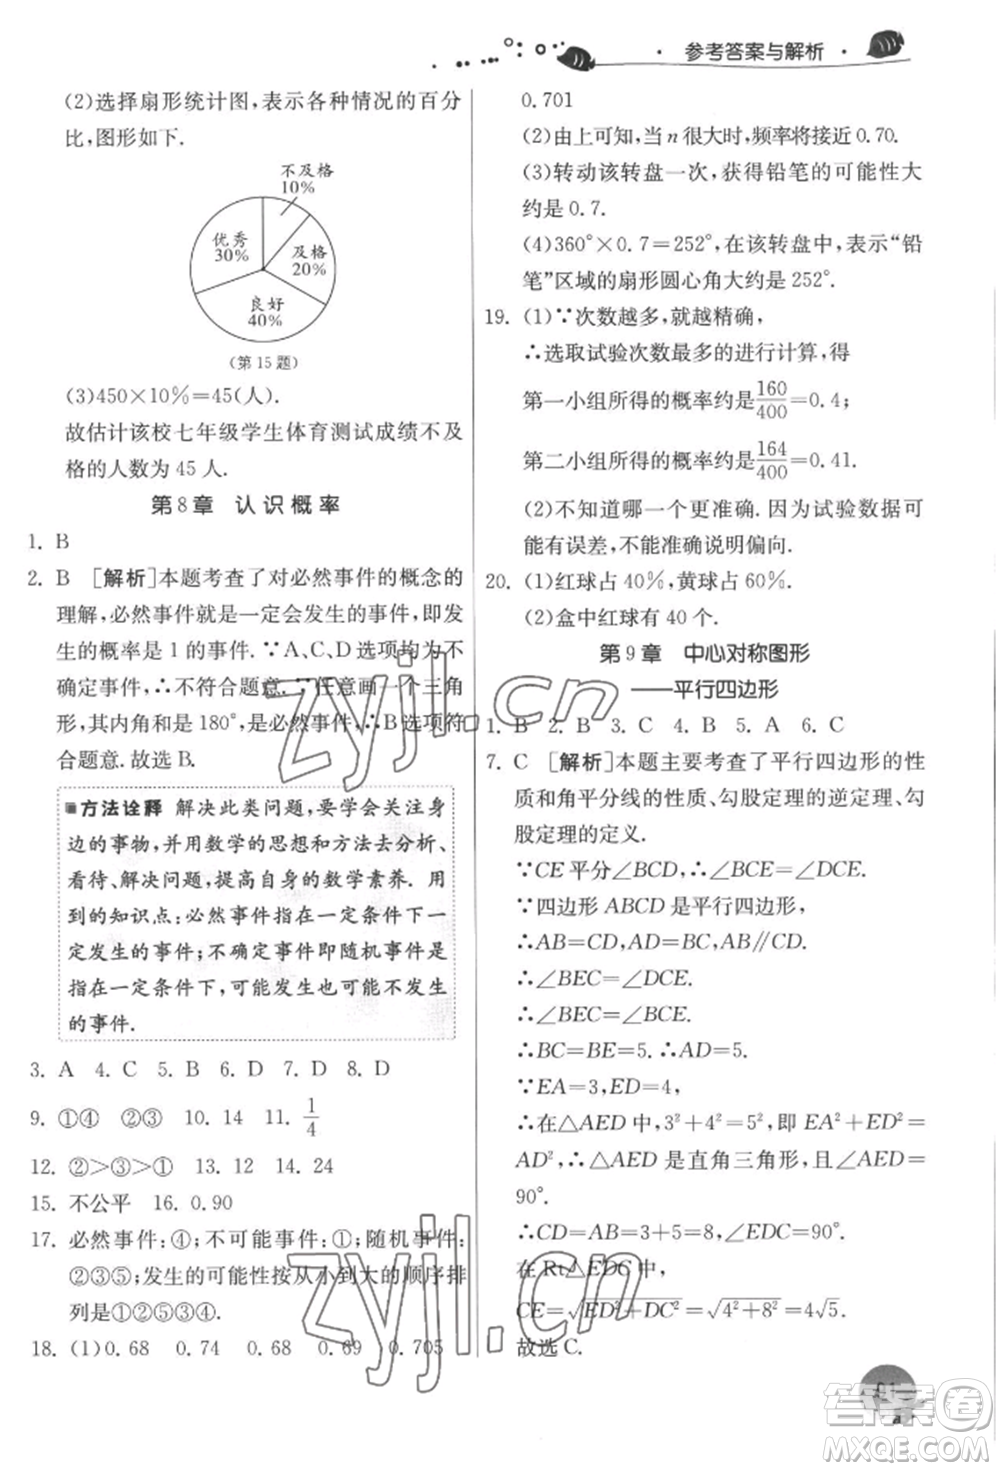 · 参考答案与解析 ·
(2)选择扇形统计图,表示各种情况的百分
比,图形如下.
不及格
10%
优秀
30%
及格
20%
良好
40%
(第15题)
(3)450×10%=45(人).
故估计该校七年级学生体育测试成绩不及
格的人数为 45 人.
第8章 认识概率
1. B
2. B [解析]本题考查了对必然事件的概念的
理解,必然事件就是一定会发生的事件,即发
生的概率是 1 的事件.∵A、C、D 选项均为不
确定事件,∴不符合题意.∵任意画一个三角
形,其内角和是 180°,是必然事件,∴B选项符
合题意.故选 B.
方法诠释 解决此类问题,要学会关注身
边的事物,并用数学的思想和方法去分析、
看待、解决问题,提高自身的数学素养. 用
到的知识点:必然事件指在一定条件下一
定发生的事件;不确定事件即随机事件是
指在一定条件下,可能发生也可能不发生
的事件.
3. A 4. C 5. B 6. D 7. D 8. D
9. ①④ ②③ 10. 14 11. 1/4
12. ②>③>① 13. 12 14. 24
15. 不公平 16. 0.90
17. 必然事件:④;不可能事件:①;随机事件:
②③⑤;发生的可能性按从小到大的顺序排
列是①②⑤③④.
18. (1)0.68 0.74 0.68 0.69 0.705
0.701
(2)由上可知,当 n 很大时,频率将接近 0.70.
(3)转动该转盘一次,获得铅笔的可能性大
约是 0.7.
(4)360°×0.7=252°,在该转盘中,表示“铅
笔”区域的扇形圆心角大约是 252°.
19. (1)∵次数越多,就越精确,
∴选取试验次数最多的进行计算,得
第一小组所得的概率约是160/400=0.4;
第二小组所得的概率约是164/400=0.41.
(2)不知道哪一个更准确. 因为试验数据可
能有误差,不能说明偏向.
20. (1)红球占 40%,黄球占 60%.
(2)盒中红球有 40 个.
第9章 中心对称图形
——平行四边形
1. B 2. B 3. C 4. B 5. A 6. C
7. C [解析]本题主要考查了平行四边形的性
质和角平分线的性质、勾股定理的逆定理、勾
股定理的定义.
∵CE 平分∠BCD,∴∠BCE=∠DCE.
∵四边形 ABCD 是平行四边形,
∴AB=CD,AD=BC,AB∥CD.
∴∠BEC=∠DCE.
∴∠BEC=∠BCE.
∴BC=BE=5.∴AD=5.
∵EA=3,ED=4,
∴在△AED 中,3²+4²=5²,即 EA²+ED²=
AD²,∴△AED 是直角三角形,∴∠AED=
90°.
∴CD=AB=3+5=8,∠EDC=90°.
在 Rt△EDC 中,
CE=√(ED²+DC²)=√(4²+8²)=4√5.
故选 C.
zyjl.cn
zyjl.cn
答案圈
MXQE.COM